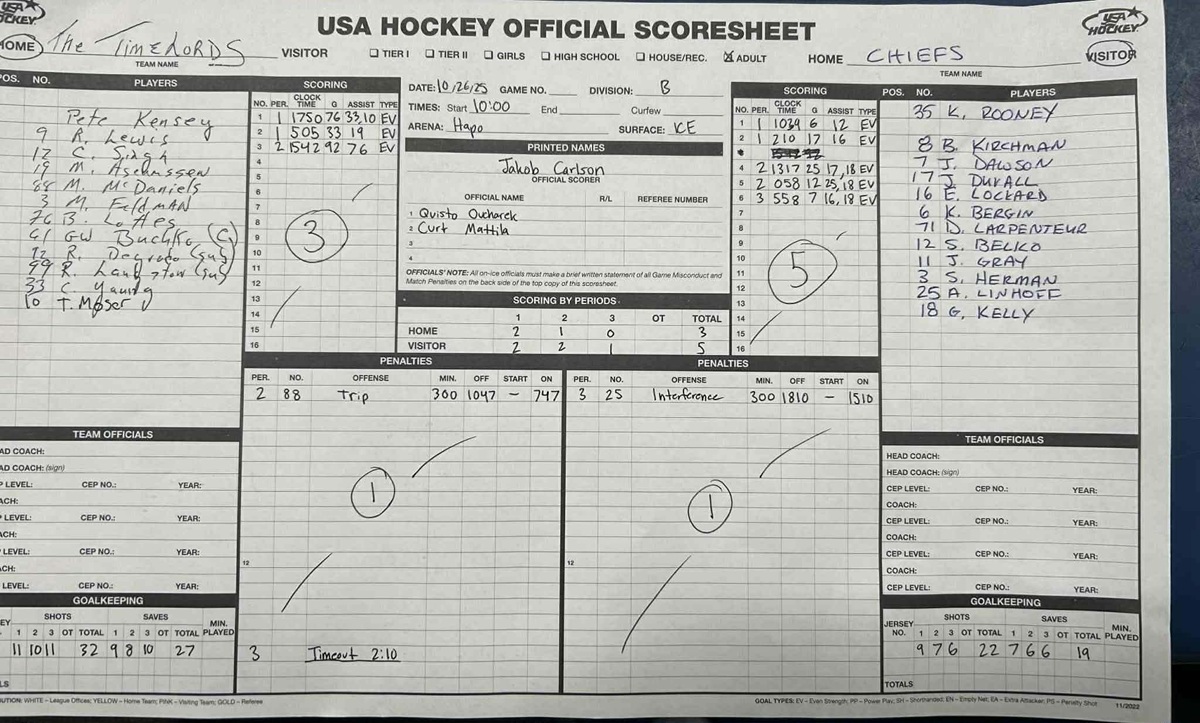 USA HOCKEY OFFICIAL SCORESHEET
USA HOCKEY
HOME The TimeLORDS VISITOR
TEAM NAME
☐ TIER I ☐ TIER II ☐ GIRLS ☐ HIGH SCHOOL ☐ HOUSE/REC. ☒ ADULT
HOME CHIEFS VISITOR
TEAM NAME
POS. NO. PLAYERS
Pete Kensey
9 R. Lewis
12 C. Singh
19 M. Asmussen
88 M. McDaniels
3 M. Feldman
76 B. L. Aes
61 GW Buchko (C)
92 R. Degroso (sub)
99 R. Langstow (sub)
33 C. Young
10 T. Moser
SCORING
NO. PER. CLOCK TIME G ASSIST TYPE
1 1 1750 76 33,10 EV
2 1 505 33 19 EV
3 2 1542 92 76 EV
4
5
6
7
8
9
10
11
12
13
14
15
16
3
DATE: 10/26/25 GAME NO. DIVISION: B
TIMES: Start 10:00 End Curfew
ARENA: Hapo SURFACE: ICE
PRINTED NAMES
Jakob Carlson
OFFICIAL SCORER
OFFICIAL NAME R/L REFEREE NUMBER
1 Quisto Oucharek
2 Curt Mattila
3
4
OFFICIALS' NOTE: All on-ice officials must make a brief written statement of all Game Misconduct and
Match Penalties on the back side of the top copy of this scoresheet.
SCORING BY PERIODS
1 2 3 OT TOTAL
HOME 2 1 0 3
VISITOR 2 2 1 5
SCORING
NO. PER. CLOCK TIME G ASSIST TYPE
1 1 1039 6 12 EV
2 1 210 17 16 EV
4 2 1317 25 17,18 EV
5 2 058 12 25,18 EV
6 3 558 7 16,18 EV
7
8
9
10
11
12
13
14
15
16
5
POS. NO. PLAYERS
35 K. ROONEY
8 B. KIRCHMAN
7 J. DAWSON
17 J. DUVALL
16 E. LOCKARD
6 K. BERGIN
71 D. CARPENTEUR
12 S. BELKO
11 J. GRAY
3 S. HERMAN
25 A. LINHOFF
18 G. KELLY
PENALTIES
PER. NO. OFFENSE MIN. OFF START ON
2 88 Trip 300 1047 – 747
1
12
3 Timeout 2:10
PENALTIES
PER. NO. OFFENSE MIN. OFF START ON
3 25 Interference 300 1810 – 1510
1
12
TEAM OFFICIALS
AD COACH:
AD COACH: (sign)
P LEVEL: CEP NO.: YEAR:
ACH:
P LEVEL: CEP NO.: YEAR:
ACH:
LEVEL: CEP NO.: YEAR:
ACH:
LEVEL: CEP NO.: YEAR:
GOALKEEPING
EY SHOTS SAVES MIN. PLAYED
1 2 3 OT TOTAL 1 2 3 OT TOTAL
11 10 11 32 9 8 10 27
LS
TEAM OFFICIALS
HEAD COACH:
HEAD COACH: (sign)
CEP LEVEL: CEP NO.: YEAR:
COACH:
CEP LEVEL: CEP NO.: YEAR:
COACH:
CEP LEVEL: CEP NO.: YEAR:
COACH:
CEP LEVEL: CEP NO.: YEAR:
GOALKEEPING
JERSEY NO. SHOTS SAVES MIN. PLAYED
1 2 3 OT TOTAL 1 2 3 OT TOTAL
9 7 6 22 7 6 6 19
TOTALS
UTION: WHITE – League Offices; YELLOW – Home Team; PINK – Visiting Team; GOLD – Referee
GOAL TYPES: EV – Even Strength; PP – Power Play; SH – Shorthanded; EN – Empty Net; EA – Extra Attacker; PS – Penalty Shot 11/2022